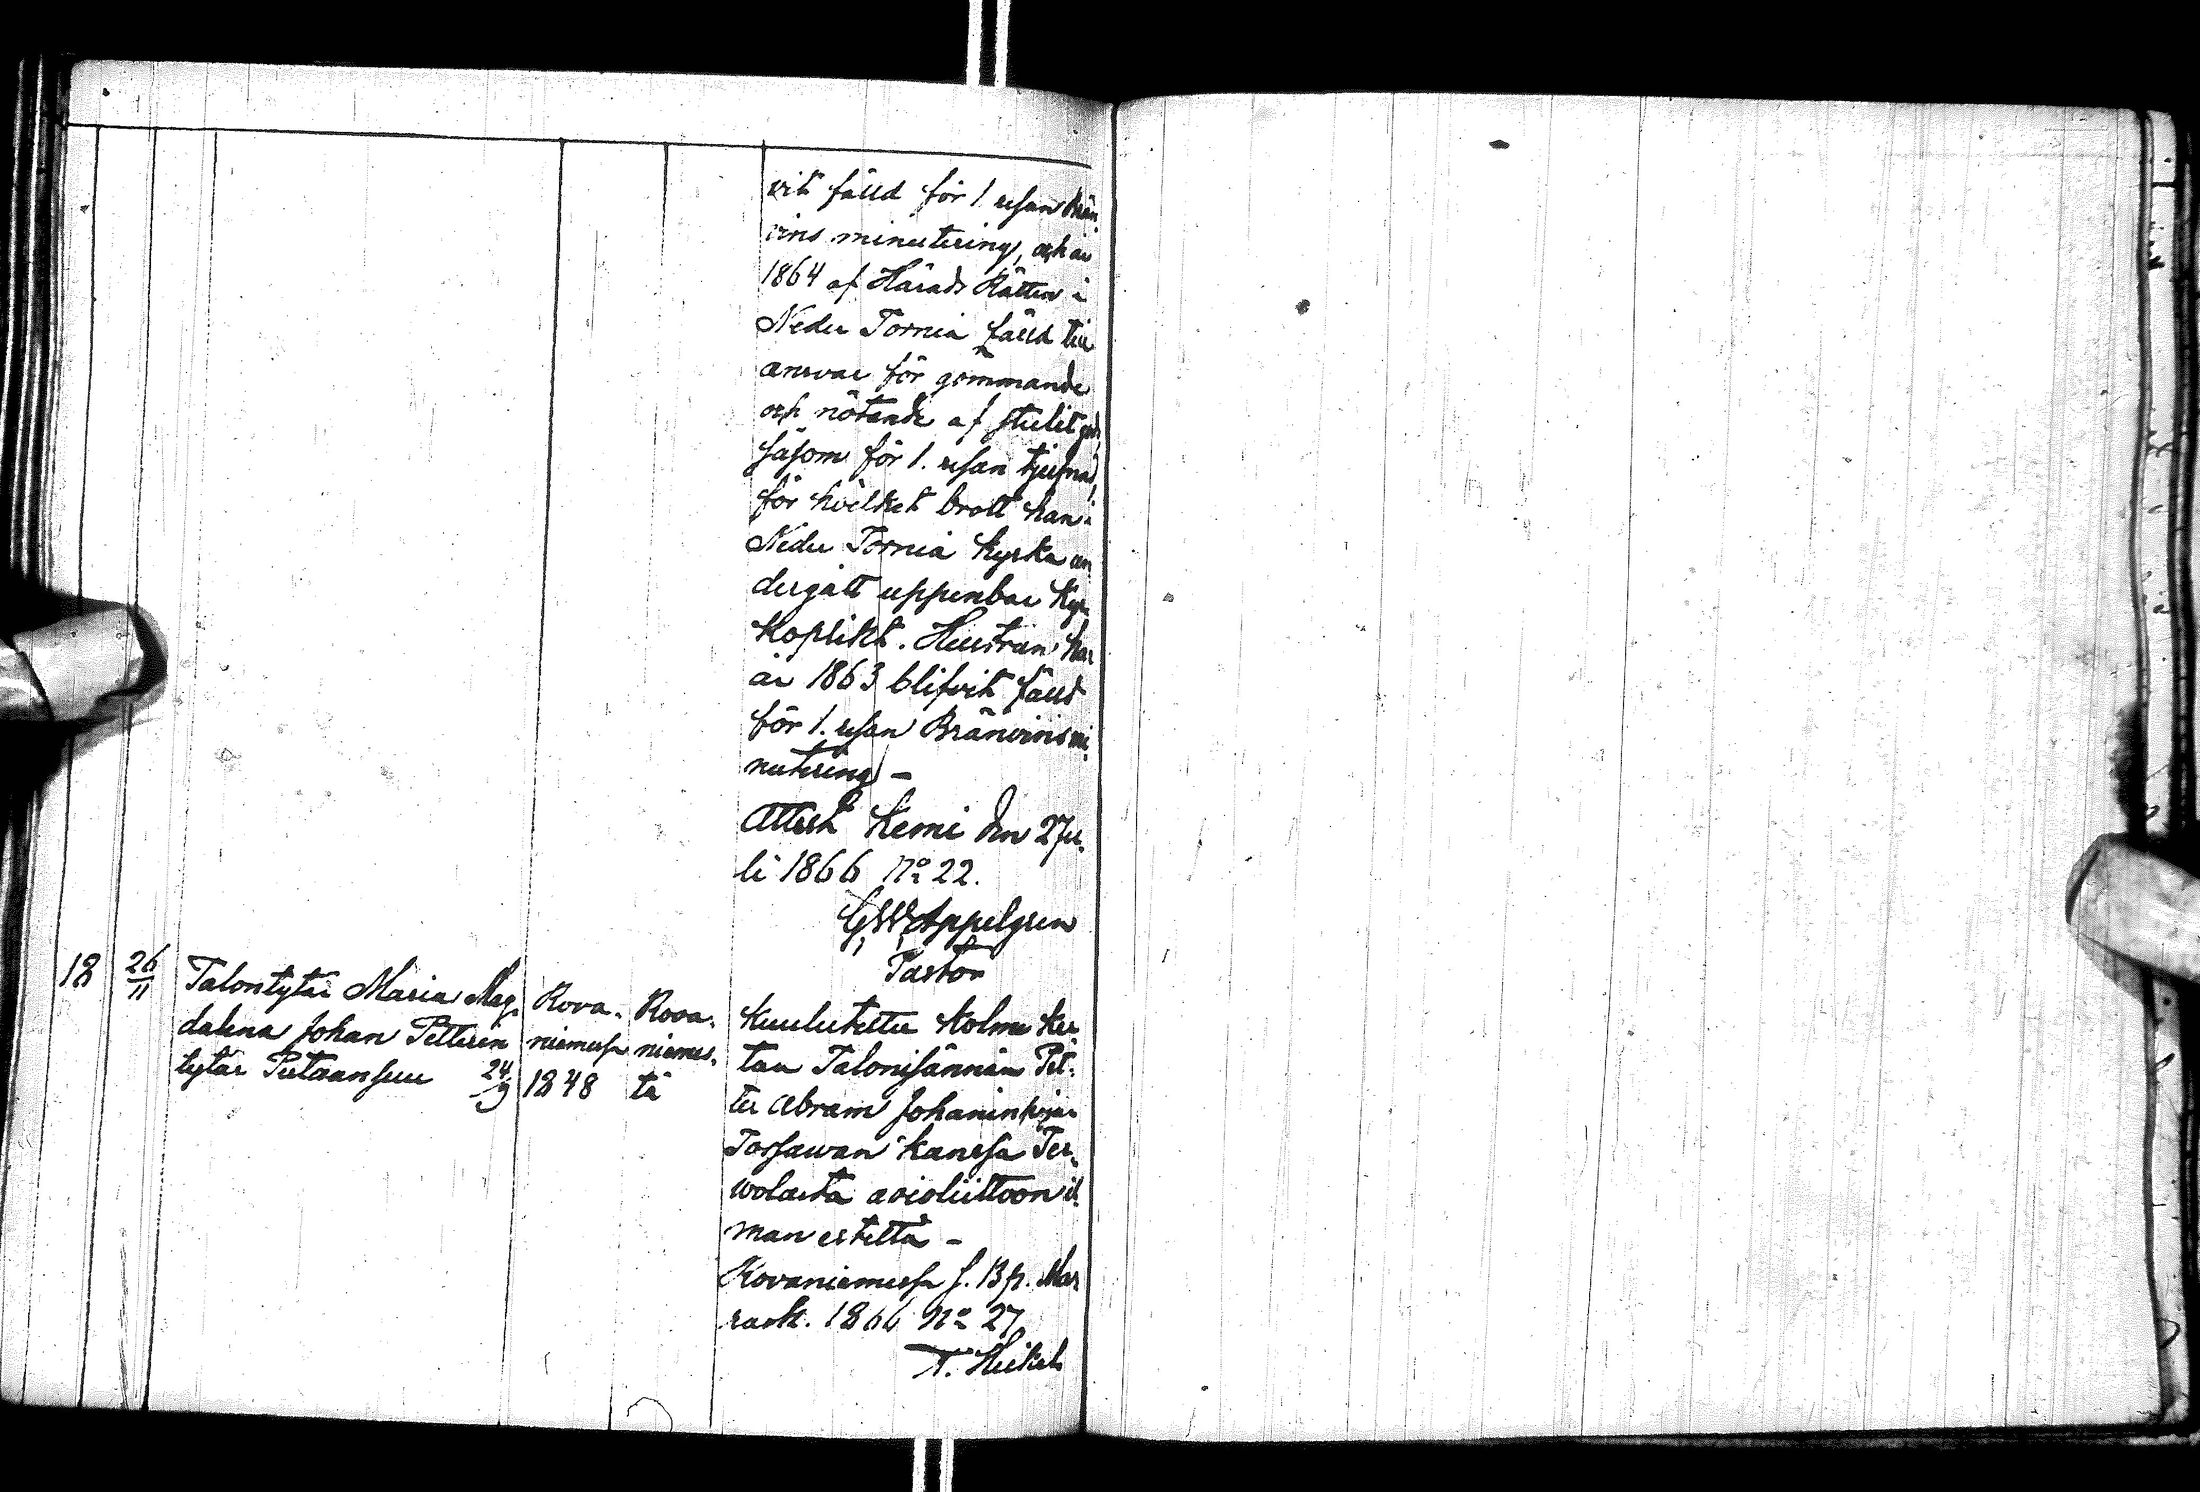 vit fälld för 1. resan Brän
vins minutering, och år
1864 af Härads Rätten i
Neder Torneå fälld till
ansvar för gömmande
och nötande af stulet gods,
såsom för 1. resan tjufnad,
för hvilket brott han i
Neder Torneå kyrka un
dergått uppenbar Kyr
koplikt. Hustrun har
år 1863 blifvit fälld
för 1. resan Bränvins mi
nutering –
Attest Kemi den 2 Ju
li 1866 No 22.
G W Appelgren
Pastor
18 26/11 Talontytär Maria Mag- Rova- Rova-
dalena Johan Petterin niemessa niemes-
tytär Putaansuu 24/9 1848 tä
Kuulutettu kolme ker
tan Talonisännän Pet-
ter Abram Johaninpojan
Torsawan kanssa Ter-
wolasta avioliittoon il
man estettä –
Rovaniemessä s. 13 p. Mar
rask. 1866 No 27
T. Heikel